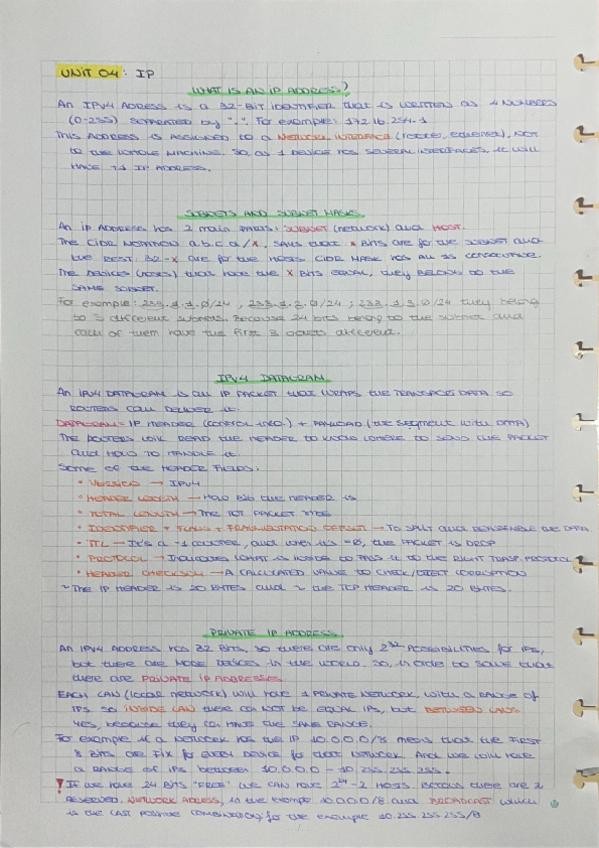 UNIT 04: IP
WHAT IS AN IP ADDRESS?
An IPv4 ADDRESS is a 32-BIT IDENTIFIER that is WRITTEN as 4 NUMBERS
(0-255) SEPARATED by ".". For example: 172.16.254.1
THIS ADDRESS is ASSIGNED to a NETWORK INTERFACE (), NOT
to the WHOLE MACHINE. SO, as 1 DEVICE has SEVERAL INTERFACES, it will
HAVE +1 IP ADDRESS.
SUBNETS AND SUBNET MASK
An ip ADDRESS has 2 main PARTS: SUBNET (network) and HOST.
The CIDR NOTATION a.b.c.d/x, SAYS that x BITS are for the SUBNET and
the REST: 32-x are for the HOSTS. CIDR MASK has ALL 1s CONSECUTIVE.
The DEVICES (HOSTS) that have the x BITS EQUAL, they BELONG to the
SAME SUBNET.
For example: 233.1.1.0/24, 233.1.2.0/24; 233.1.3.0/24 they belong
to 3 different subnets. Because 24 bits belong to the subnet and
each of them have the first 3 octets different.
IPv4 DATAGRAM
An IPv4 DATAGRAM is an IP PACKET that WRAPS the TRANSPORT DATA so
ROUTERS can DELIVER it.
DATAGRAM = IP HEADER (CONTROL info.) + PAYLOAD (the segment with DATA)
The ROUTERS will READ the HEADER to KNOW WHERE to SEND the PACKET
and HOW to HANDLE it.
Some of the HEADER FIELDS:
• VERSION → IPv4
• HEADER LENGTH → HOW BIG the HEADER is
• TOTAL LENGTH → The TOT PACKET SIZE
• IDENTIFIER + FLAGS + FRAGMENTATION OFFSET → TO SPLIT and REASSEMBLE the DATA
• TTL → It's a -1 COUNTER, and when it's =0, the PACKET is DROP
• PROTOCOL → INDICATES WHAT is inside to PASS it to the RIGHT TRASP. PROTOCOL
• HEADER CHECKSUM → A CALCULATED VALUE to CHECK/DTECT CORRUPTION
~ The IP HEADER is 20 BYTES and ~ the TCP HEADER is 20 BYTES.
PRIVATE IP ADDRESS
An IPv4 ADDRESS has 32 BITS, so there are only 2^32 POSSIBILITIES for IPs,
but there are MORE DEVICES in the WORLD. SO, in order to SOLVE that
there are PRIVATE IP ADDRESSES
EACH LAN (local network) will have 1 PRIVATE NETWORK, with a RANGE of
IPs. so INSIDE LAN there can NOT be EQUAL IPs, but BETWEEN LANs
YES, because they can HAVE the SAME RANGE.
For example if a NETWORK has the IP 10.0.0.0/8 means that the FIRST
8 BITS are FIX for EVERY DEVICE for that NETWORK. And we will have
a RANGE of IPs between 10.0.0.0 - 10.255.255.255.
! IF we have 24 BITS "FREE" WE CAN HAVE 2^24-2 HOSTS. BECAUS there are 2
RESERVED, NETWORK ADRESS, in the exempl 10.0.0.0/8 and BROADCAST which
is the LAST POSSIBLE COMBINATION, for the example 10.255.255.255/8